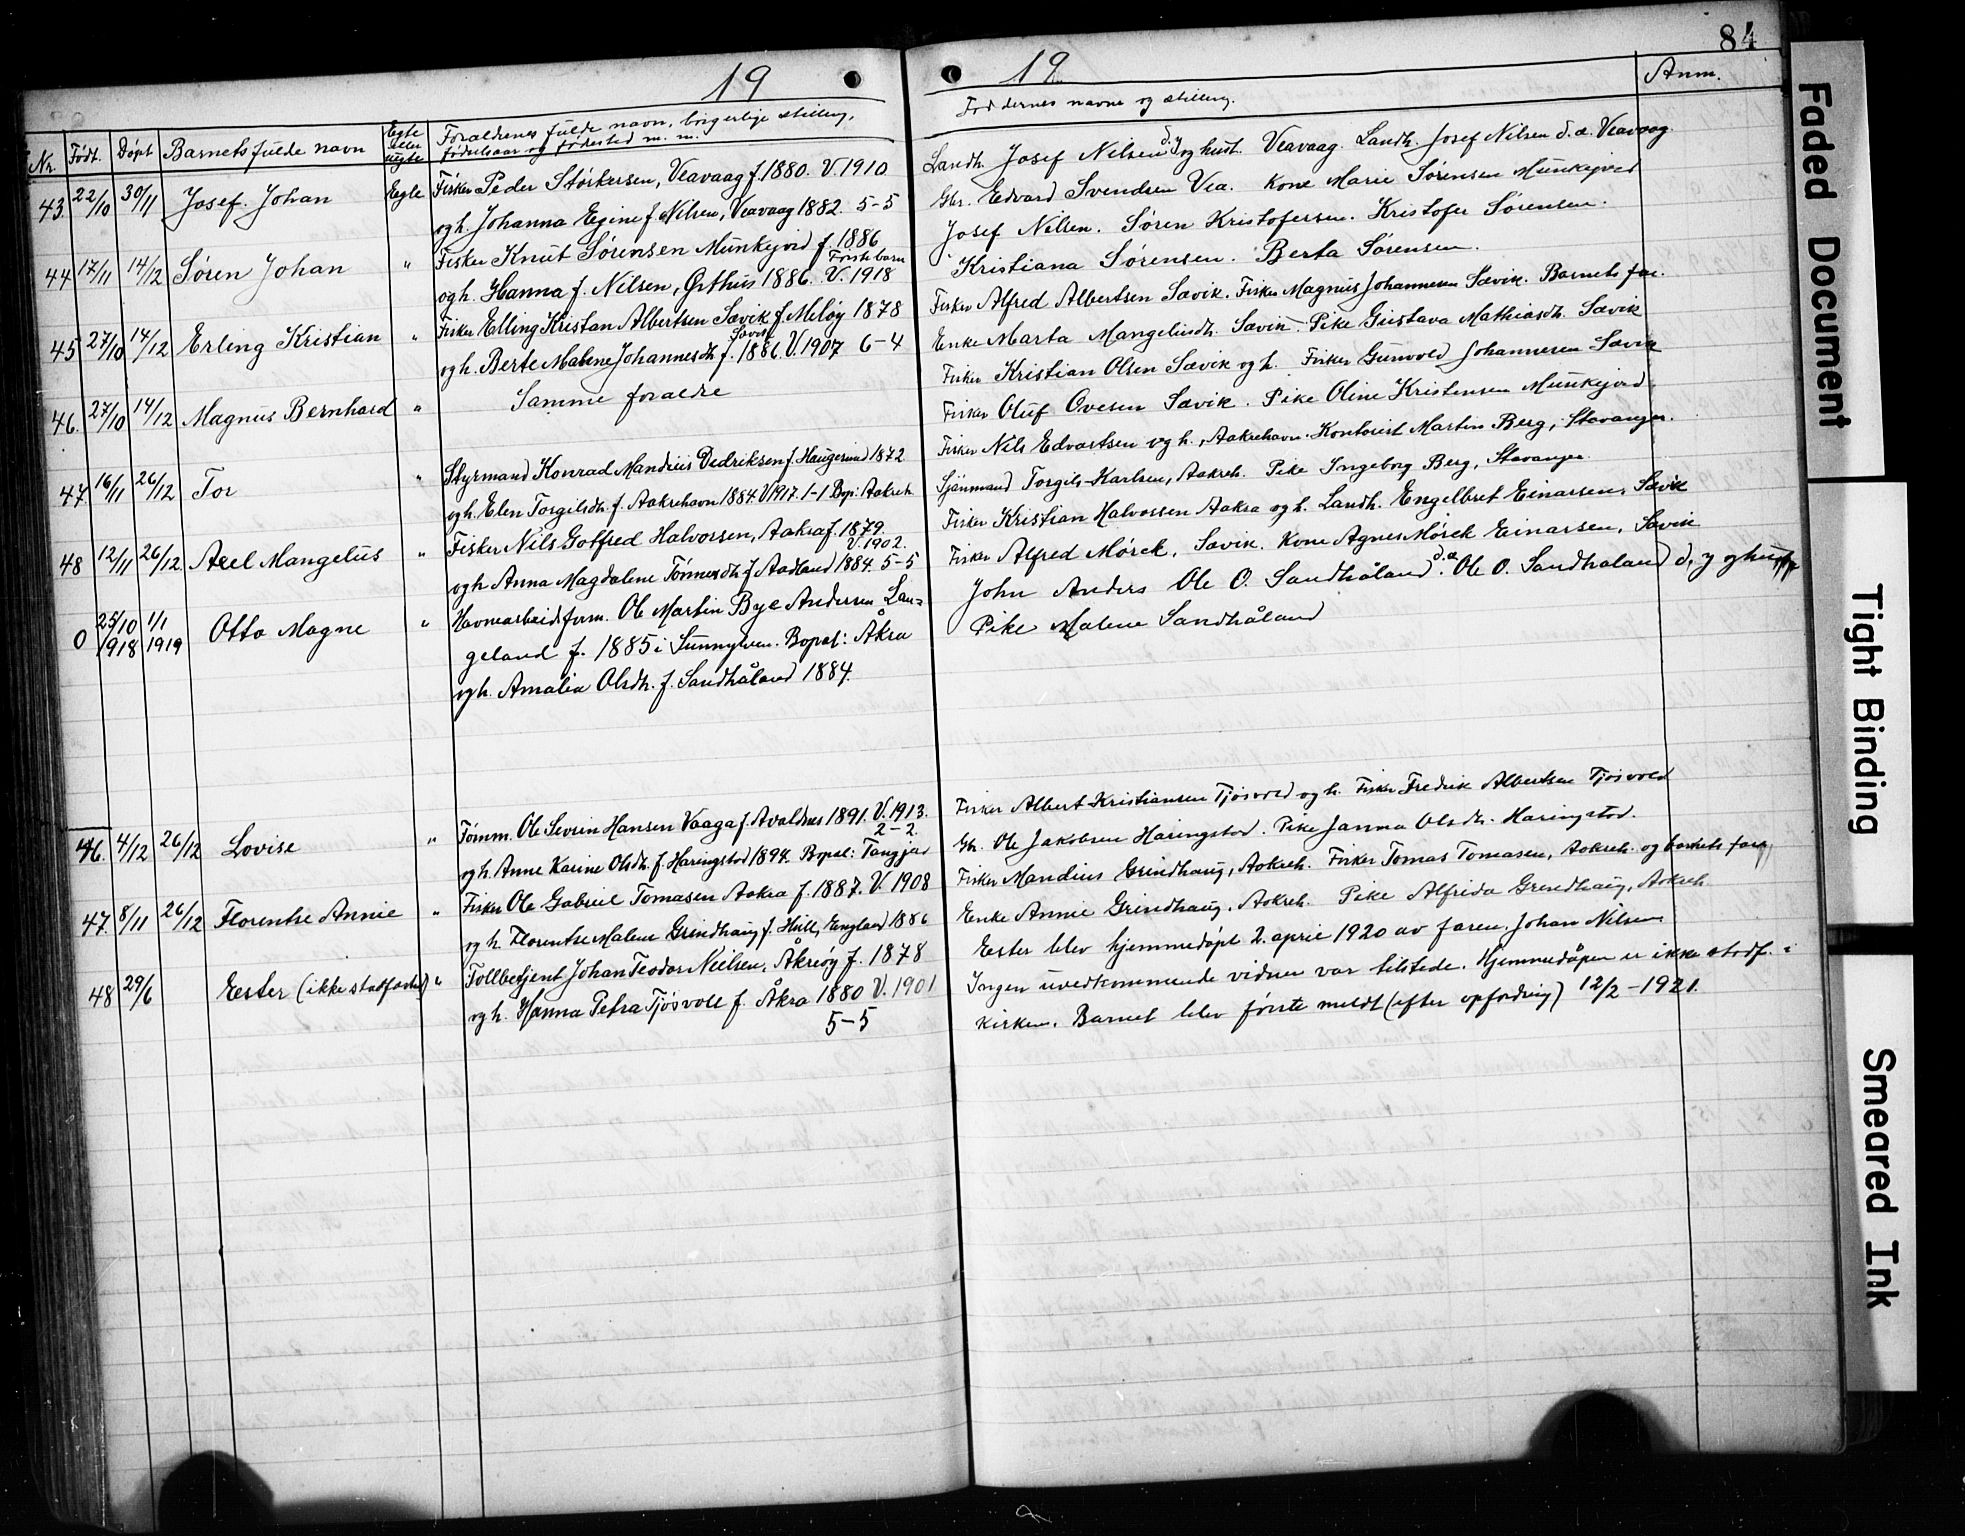 84
19
19
Nr. Født. Døpt Barnets fulde navn Egte eller uegte Forældrenes fulde navn, borgerlige stilling, fødselsaar og fødested m. m.
Faddernes navne og stilling. Anm.
43. 22/10 30/11 Josef Johan Egte Fisker Peder Størkersen, Veavaag f. 1880. V. 1910
og h. Johanna Egine f. Nilsen, Veavaag 1882. 5-5
Landh. Josef Nilsen d. y. og hust. Veavaag. Landh. Josef Nilsen d. æ. Veavaag.
Gbr. Edvard Svendsen Vea. Kone Marie Sørensen Munkejord
44 17/11 14/12 Søren Johan " Fisker Knut Sørensen Munkejord f. 1886
Første barn
og h. Hanna f. Nilsen, Ørthus 1886. V. 1918
Josef Nilsen. Søren Kristofersen. Kristofer Sørensen.
Kristiana Sørensen. Berta Sørensen.
45 27/10 14/12 Erling Kristian " Fisker Elling Kristan Albertsen Sævik f. Miløy 1878
og h. Berte Malene Johannesdh. f. Sævik 1886. V. 1907 6-4
Fisker Alfred Albertsen Sævik. Fisker Magnus Johannesen Sævik. Barnets far.
Enke Marta Mangelusdh. Sævik. Pike Gustava Mathiasdh. Sævik
46. 27/10 14/12 Magnus Bernhard " Samme foraldre
Fisker Kristian Olsen Sævik og h. Fisker Gunvold Johannesen Sævik
Fisker Oluf Ovesen Sævik. Pike Oline Kristensen Munkejord
47. 16/11 26/12 Tor " Styrmand Konrad Mandius Dedriksen f. Haugesund 1872
og h. Elen Torgilsdh. f. Aakrehavn 1884. V. 1917. 1-1 Bop: Aakreh.
Fisker Nils Edvartsen og h., Aakrehavn. Kontorist Martin Berg, Stavanger.
Sjømand Torgils Karlsen, Aakreh. Pike Ingeborg Berg, Stavanger
48 12/11 26/12 Axel Mangelus " Fisker Nils Gotfred Halvorsen, Aakra f. 1879.
V. 1902.
og h. Anna Magdalene Tønnesdh. f. Aadland 1884. 5-5
Fisker Kristian Halvorsen Aakra og h. Landh. Engelbret Einarsen, Sævik
Fisker Alfred Mørck, Sævik. Kone Agnes Mørck Einarsen, Sævik
0 25/10 1918 1/1 1919 Otto Magne " Havnearbeidsform. Ole Martin Bye Andersen Lan-
geland f. 1885 i Sunnylven. Bopæl: Åkra
og h. Amalia Olsdh. f. Sandhåland 1884.
John Anders Ole O. Sandhåland d. æ. Ole O. Sandhåland d. y. og hust
Pike Malene Sandhåland
46. 4/12 26/12 Lovise " Tømm. Ole Sevrin Hansen Vaaga f. Avaldsnes 1891. V. 1913.
2-2.
og h. Anne Karine Olsdh. f. Haringstad 1894. Bopæl: Tangjar
Fisker Albert Kristiansen Tjøsvold og h. Fisker Fredrik Albertsen Tjøsvold
Gbr. Ole Jakobsen Haringstad. Pike Janna Olsdh. Haringstad.
47. 8/11 26/12 Florentse Annie " Fisker Ole Gabriel Tomasen Aakra f. 1887. V. 1908
og h. Florentse Malene Grindhaug f. Hull, England 1886
Fisker Mandius Grindhaug, Aakreh. Fisker Tomas Tomasen, Aakreh. og barnets far
Enke Annie Grindhaug, Aakreh. Pike Alfrida Grindhaug, Aakreh.
48 29/6 Ester (ikke stadfæstet) " Tollbetjent Johan Teodor Nielsen, Åkrehøy f. 1878
og h. Hanna Petra Tjøsvoll f. Åkra 1880 V. 1901
5-5
Ester blev hjemmedøpt 2. april 1920 av faren, Johan Nilsen
Ingen uvedkommende vidner var tilstede. Hjemmedåpen er ikke stadf. i
kirken. Barnet blev først meldt (efter opfordring) 12/2-1921.
Faded Document
Tight Binding
Smeared Ink